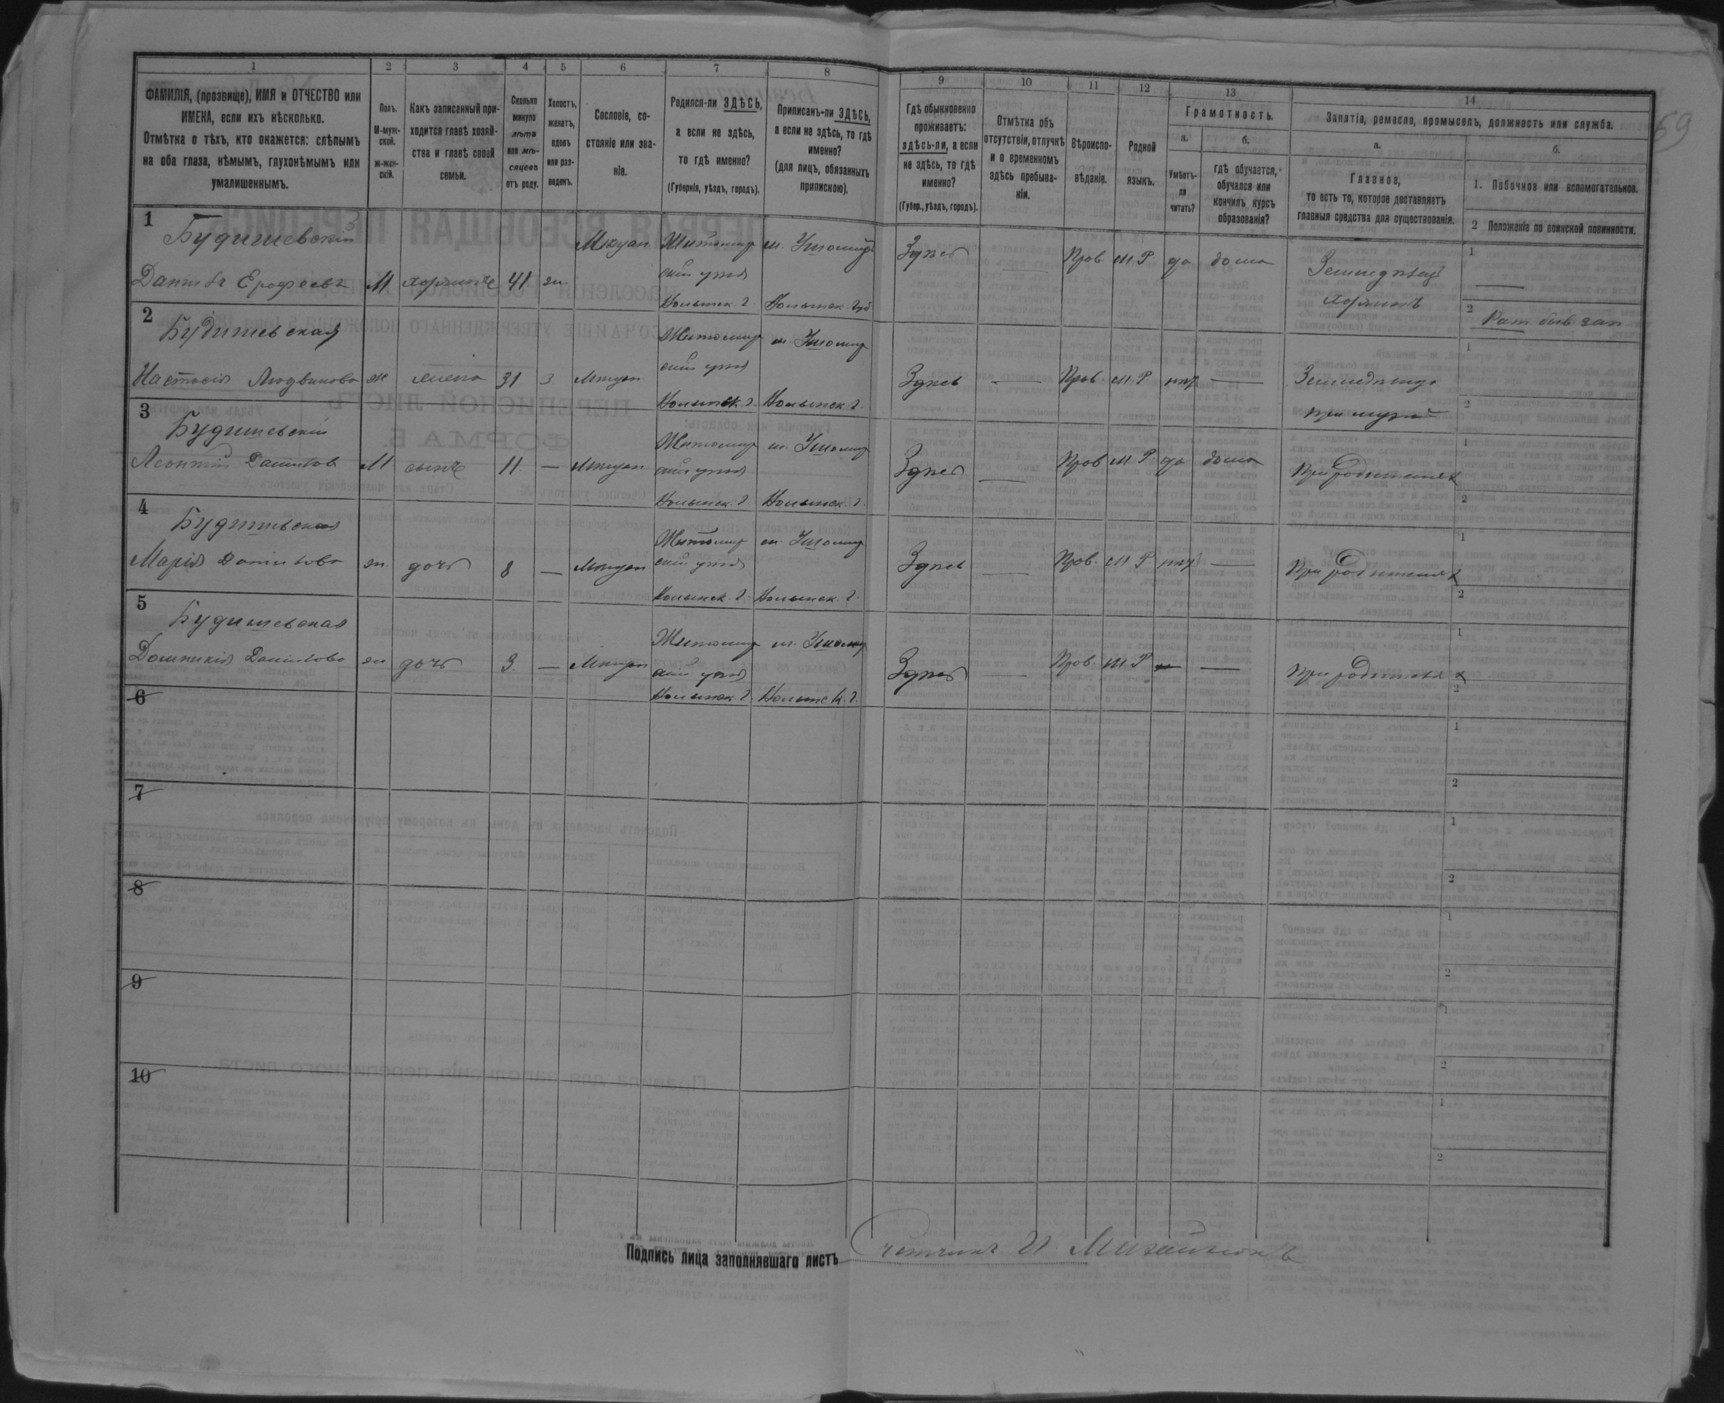 1 2 3 4 5 6 7 8 9 10 11 12 13 14
ФАМИЛІЯ, (прозвище), ИМЯ и ОТЧЕСТВО или
ИМЕНА, если ихъ нѣсколько.
Отмѣтка о тѣхъ, кто окажется: слѣпымъ
на оба глаза, нѣмымъ, глухонѣмымъ или
умалишеннымъ.
Полъ.
М-муж-
ской.
ж-жен-
скій.
Какъ записанный при-
ходится главѣ хозяй-
ства и главѣ своей
семьи.
Сколько
минуло
лѣтъ
или мѣ-
сяцевъ
отъ роду.
Холостъ,
женатъ,
вдовъ
или раз-
веденъ.
Сословіе, со-
стояніе или зва-
ніе.
Родился-ли ЗДѢСЬ,
а если не здѣсь,
то гдѣ именно?
(Губернія, уѣздъ, городъ).
Приписанъ-ли ЗДѢСЬ,
а если не здѣсь, то гдѣ
именно?
(для лицъ, обязанныхъ
припискою).
Гдѣ обыкновенно
проживаетъ:
здѣсь-ли, а если
не здѣсь, то гдѣ
именно?
(Губер., уѣздъ, городъ).
Отмѣтка объ
отсутствіи, отлучкѣ
и о временномъ
здѣсь пребыва-
ніи.
Вѣроиспо-
вѣданіе.
Родной
языкъ.
Грамотность.
а.
Умѣетъ-
ли
читать?
б.
гдѣ обучается,
обучался или
кончилъ курсъ
образованія?
Занятіе, ремесло, промыселъ, должность или служба.
а.
Главное,
то есть то, которое доставляетъ
главныя средства для существованія.
б.
1. Побочное или вспомогательное.
2 Положеніе по воинской повинности.
69
1
Будишевскій
Данило Ерофеевъ М хозяинъ 41 ж.
Житомир м. Ушомир
скій уѣзд
Волынск. г Волынск. губ
Здѣсь Прав. М Р да дома
Земледѣлецъ
хозяинъ
1
2
2
Будишевская
Настасія Людвикова ж жена 31 з
Житомир м. Ушомир
скій уѣзд
Волынск. г. Волынск. г.
Здѣсь — Прав. М Р нѣт —
при мужѣ
1
2
3
Будишевскій
Леонтій Данилов М сынъ 11 —
Житомир м. Ушомир
скій уѣзд
Волынск. г. Волынск. г.
Здѣсь — Прав М Р да дома
при родителях
1
2
4
Будишевская
Марія Данилова ж. дочь 8 —
Житомир м. Ушомир
скій уѣзд
Волынск. г. Волынск. г.
Здѣсь — Прав. М Р нѣт —
при родителях
1
2
5
Будишевская
Домникія Данилова ж дочь 3 —
Житомир м. Ушомир
скій уѣзд
Волынск. г. Волынск. г.
Здѣсь — Прав. М. Р — —
при родителях
1
2
6
1
2
7
1
2
8
1
2
9
1
2
10
1
2
Подпись лица заполнявшаго листъ Счетчикъ И. Михайлюкъ